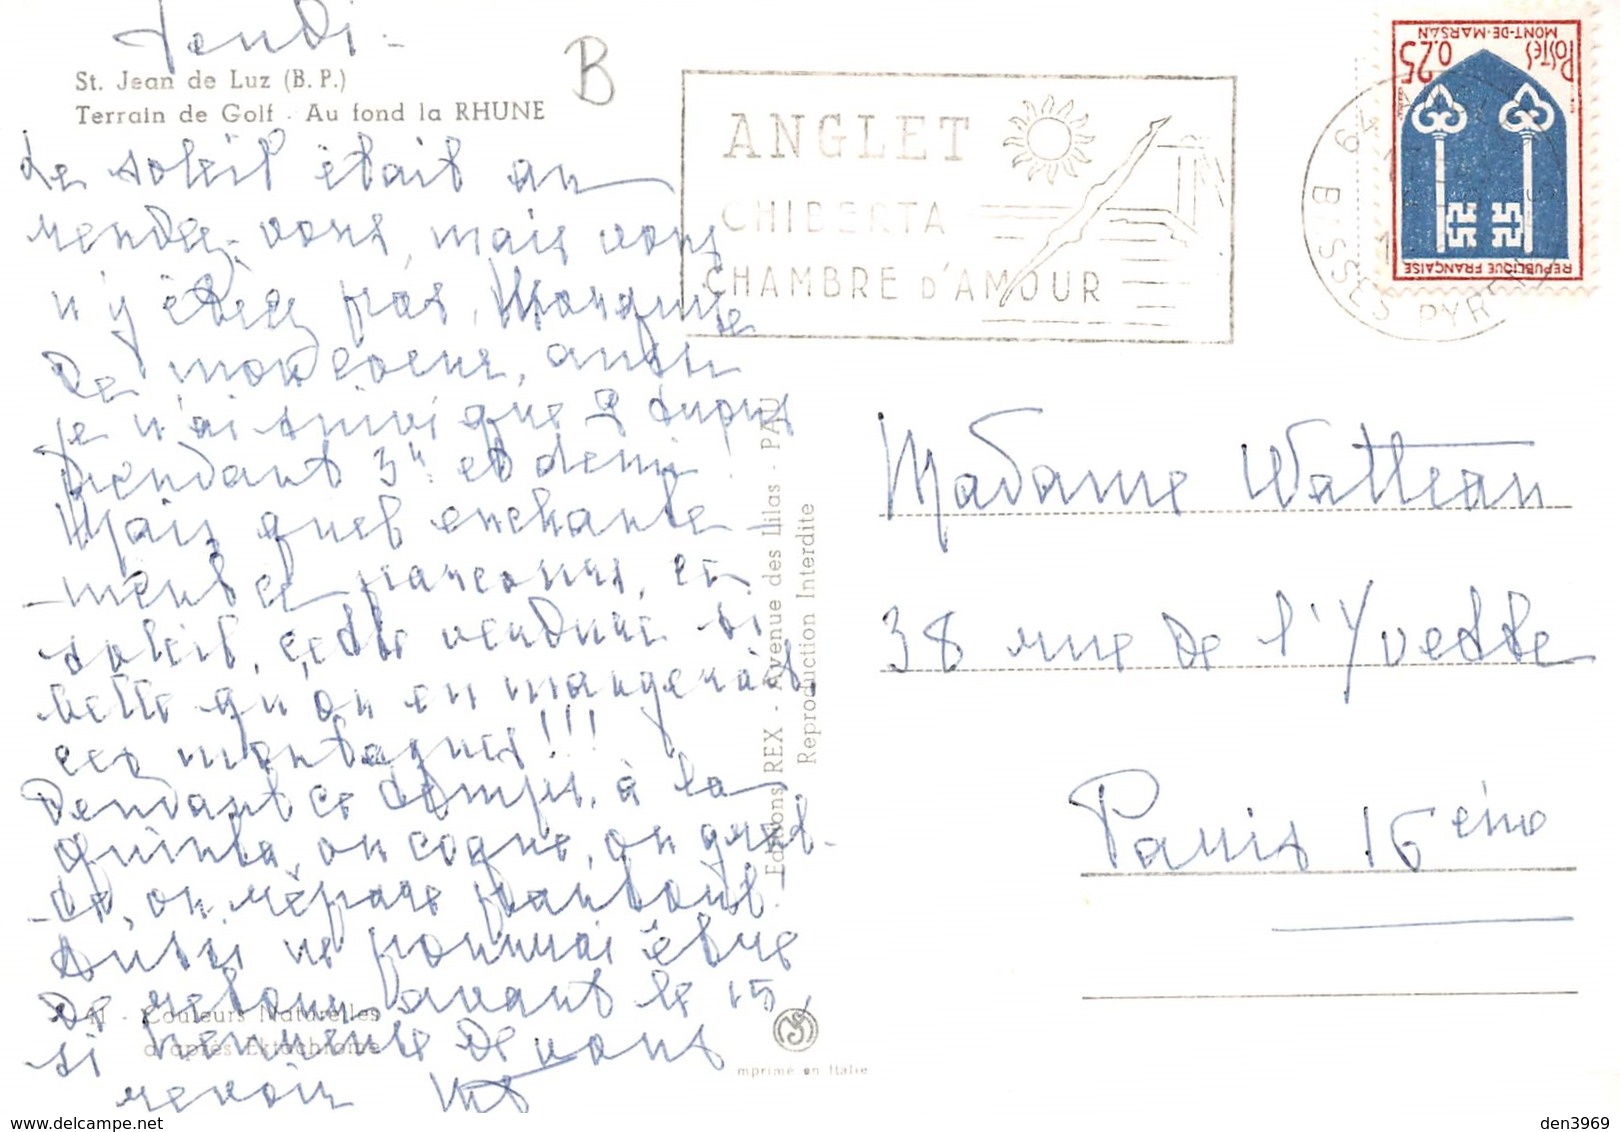 Jeudi -
St. Jean de Luz (B. P.)
Terrain de Golf - Au fond la RHUNE
B
Le soleil était au
rendez-vous, mais vous
n'y étiez pas, Marquise
de mon coeur, aussi
je n'ai suivi que 2
pendant 3h et demi !
Mais quel enchante-
-ment ce parcours, ce
soleil, cette verdure si
belle qu'on en mangerait,
ces montagnes !!!
Pendant ce temps, à la
quinta, on cogne, on
on répare partout !
Aussi ne pourrai être
de retour avant le 15,
si heureuse de vous
revoir
41 - Couleurs Naturelles
d'après Ektachrome
Editions REX - Avenue des Lilas - PAU
Reproduction Interdite
imprimé en Italie
ANGLET
CHIBERTA
CHAMBRE D'AMOUR
BASSES PYRENEES
POSTES
0,25
MONT-DE-MARSAN
REPUBLIQUE FRANÇAISE
Madame Watteau
38 rue de l'Yvette
Paris 16ème
den3969